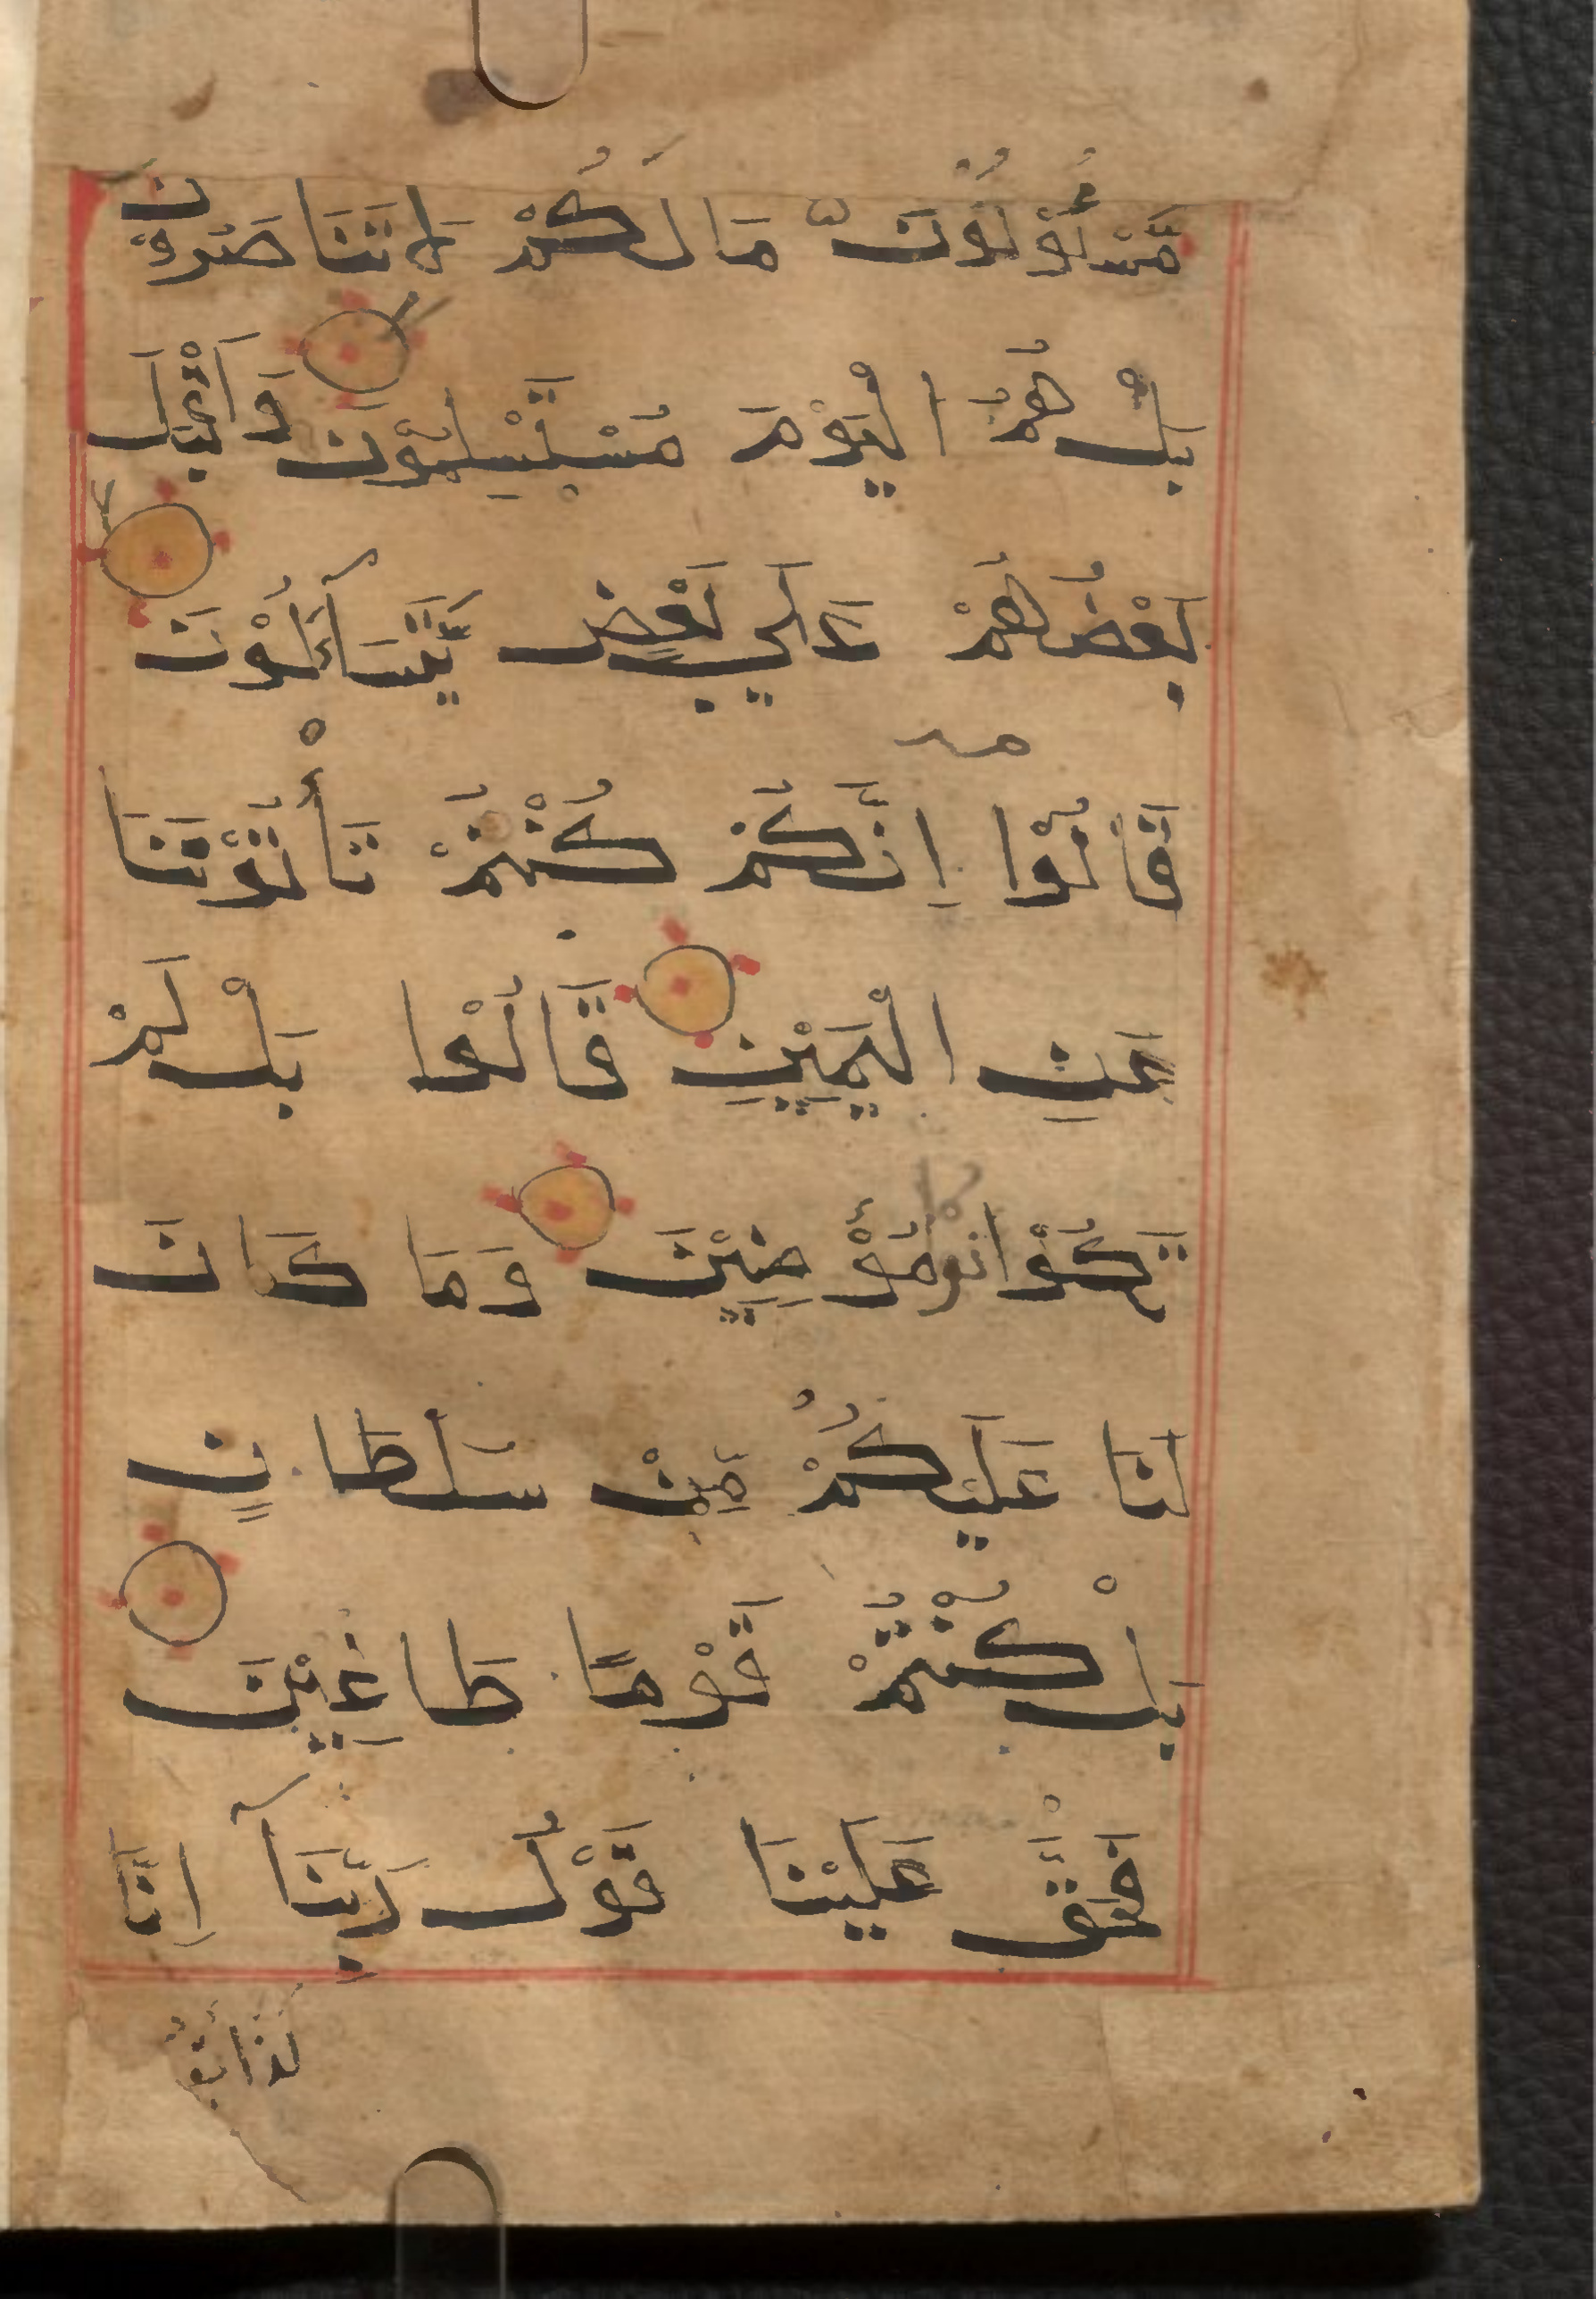 مَّسْـُٔوْلُوْنَ مَا لَكُمْ لَا تَنَاصَرُوْنَ
بَلْ هُمُ الْيَوْمَ مُسْتَسْلِمُوْنَ وَاَقْبَلَ
بَعْضُهُمْ عَلٰي بَعْضٍ يَّتَسَآءَلُوْنَ
قَالُوْا اِنَّكُمْ كُنْتُمْ تَأْتُوْنَنَا
عَنِ الْيَمِيْنِ قَالُوْا بَلْ لَمْ
تَكُوْنُوْا مُؤْمِنِيْنَ وَمَا كَانَ
لَنَا عَلَيْكُمْ مِّنْ سُلْطَانٍ
بَلْ كُنْتُمْ قَوْمًا طَاغِيْنَ
فَحَقَّ عَلَيْنَا قَوْلُ رَبِّنَآ اِنَّا
لَذَائِقُوْ